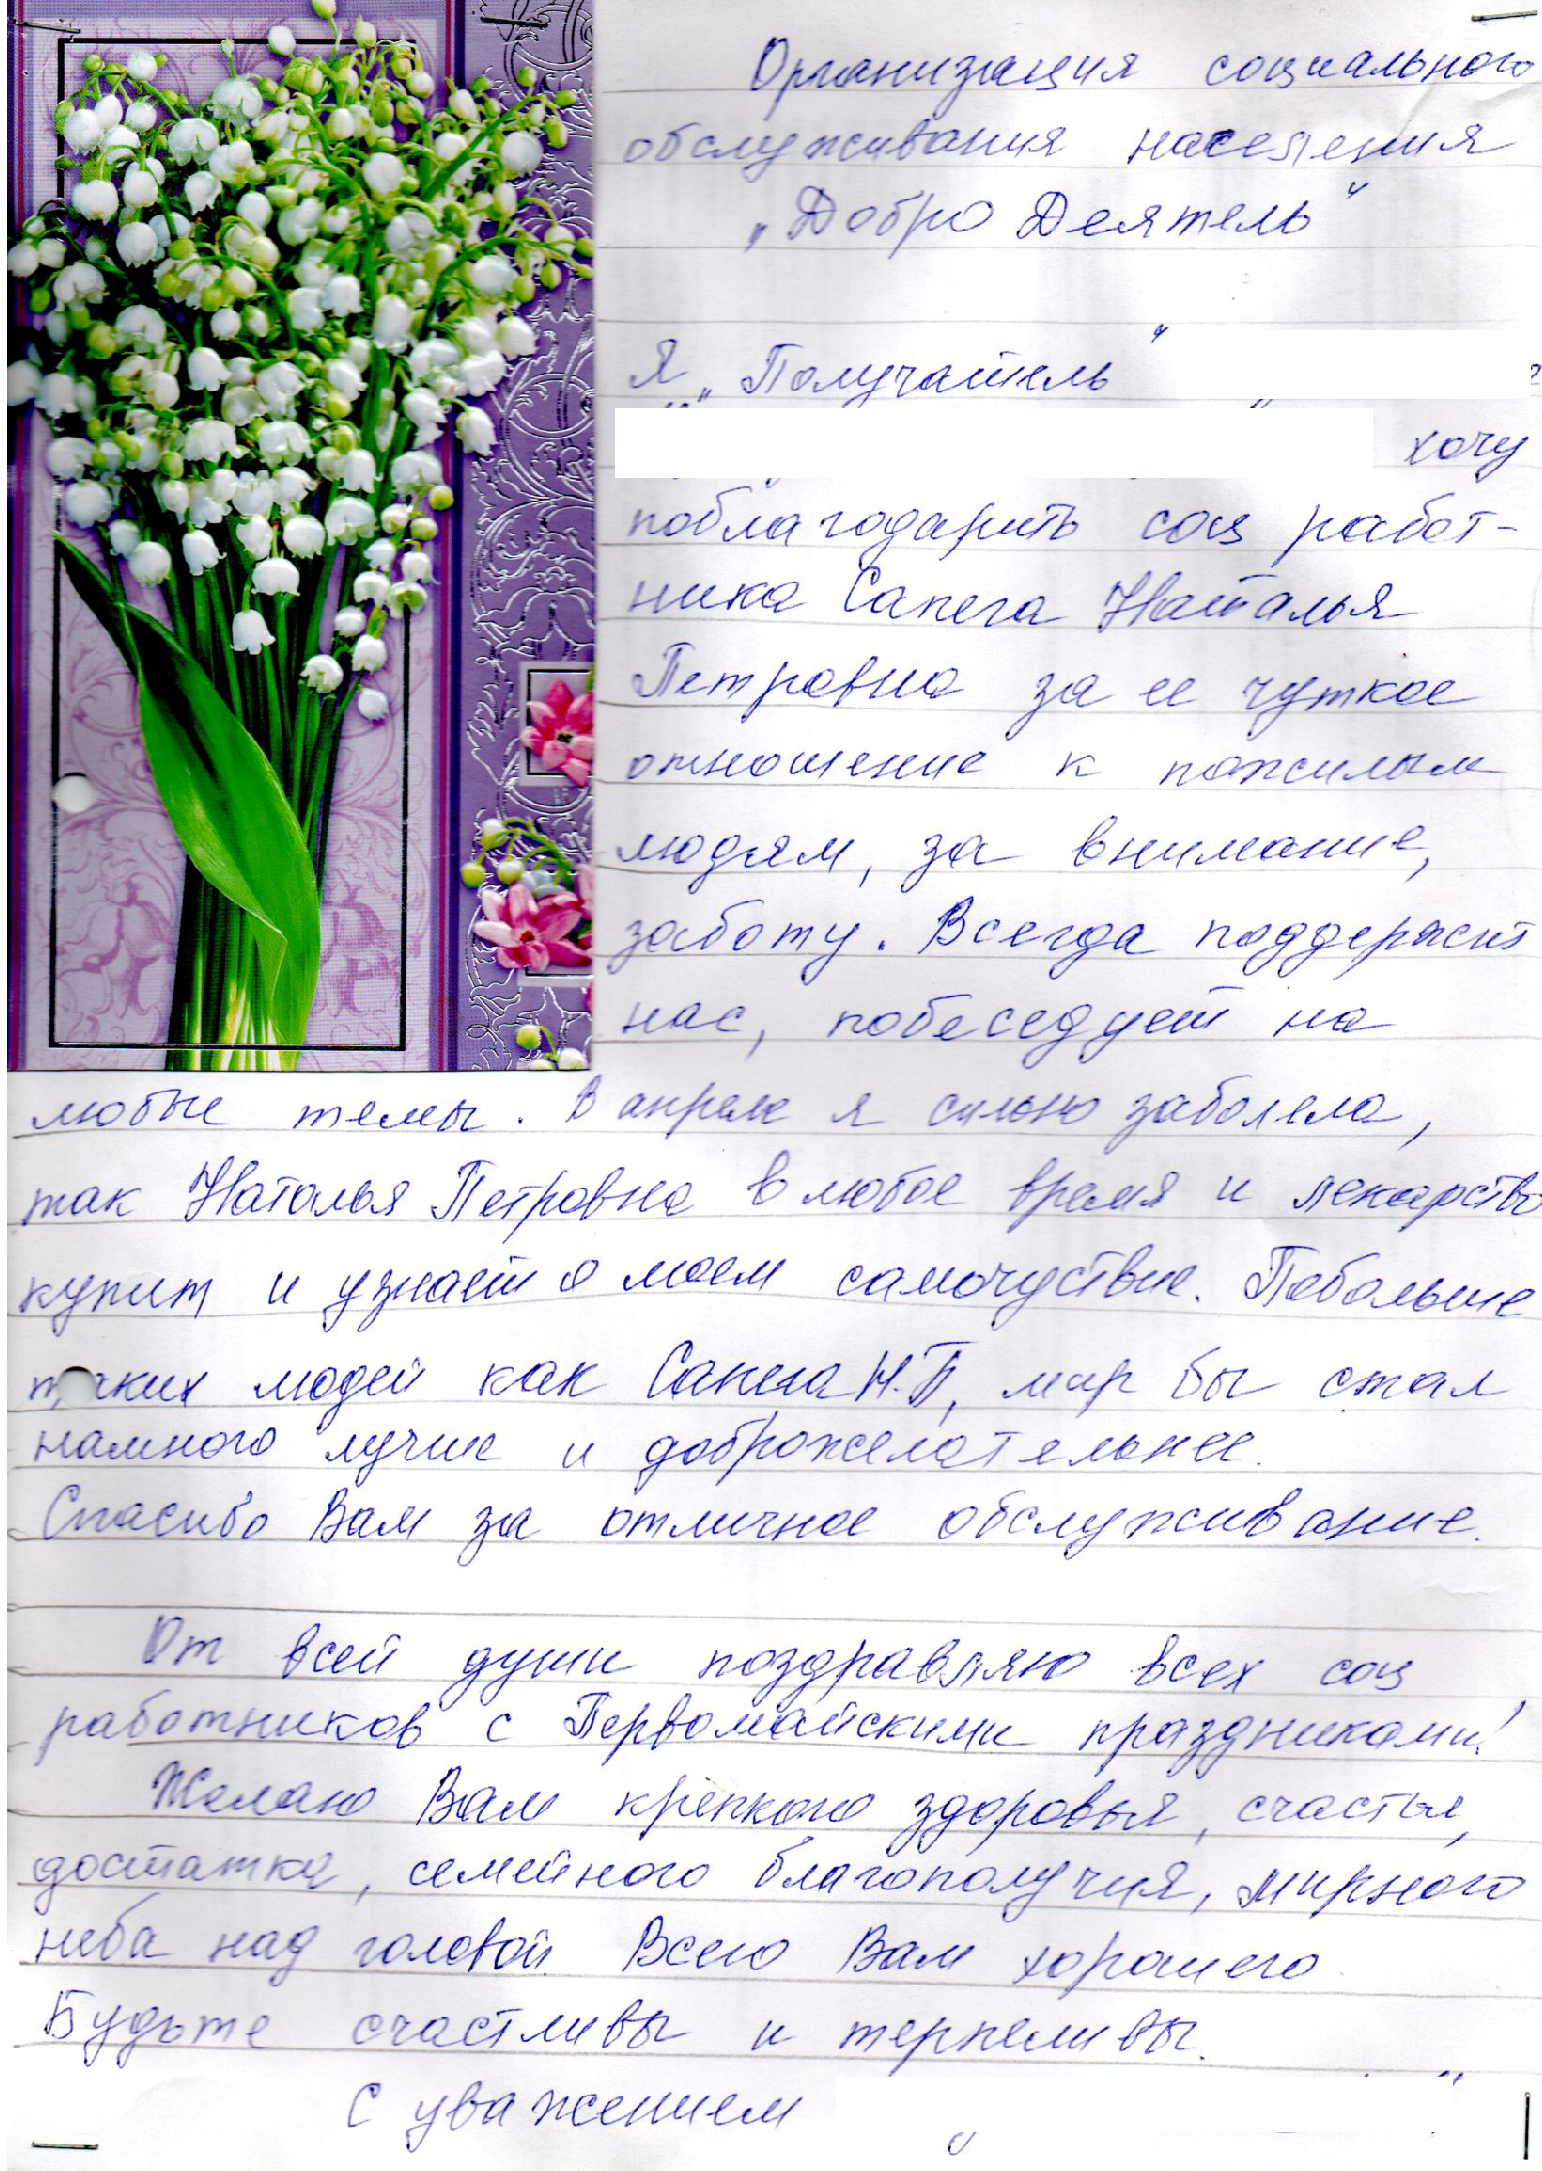 Организация социального
обслуживания населения
„Добро Деятель"
Я „Получатель"
хочу
поблагодарить соц работ-
ника Сапега Наталья
Петровна за ее чуткое
отношение к пожилым
людям, за внимание,
заботу. Всегда поддержит
нас, побеседует на
любые темы. В апреле я сильно заболела,
так Наталья Петровна в любое время и лекарство
купит и узнает о моем самочуствие. Побольше
таких людей как Сапега Н.П, мир бы стал
намного лучше и доброжелательнее.
Спасибо Вам за отличное обслуживание.
От всей души поздравляю всех соц
работников с Первомайскими праздниками!
Желаю Вам крепкого здоровья, счастья,
достатка, семейного благополучия, мирного
неба над головой. Всего Вам хорошего.
Будьте счастливы и терпеливы.
С уважением